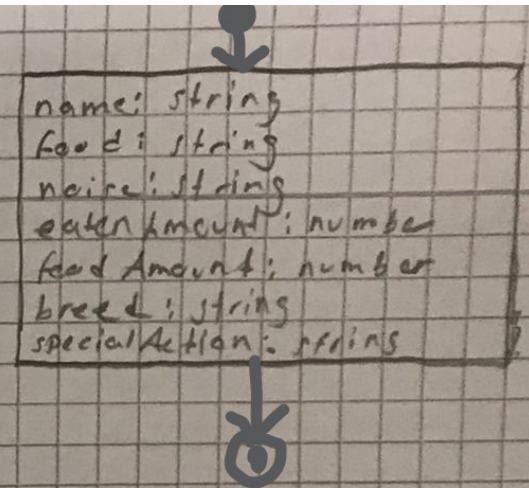 name: string
food: string
noise: string
eatenAmount: number
feedAmount: number
breed: string
specialAction: string